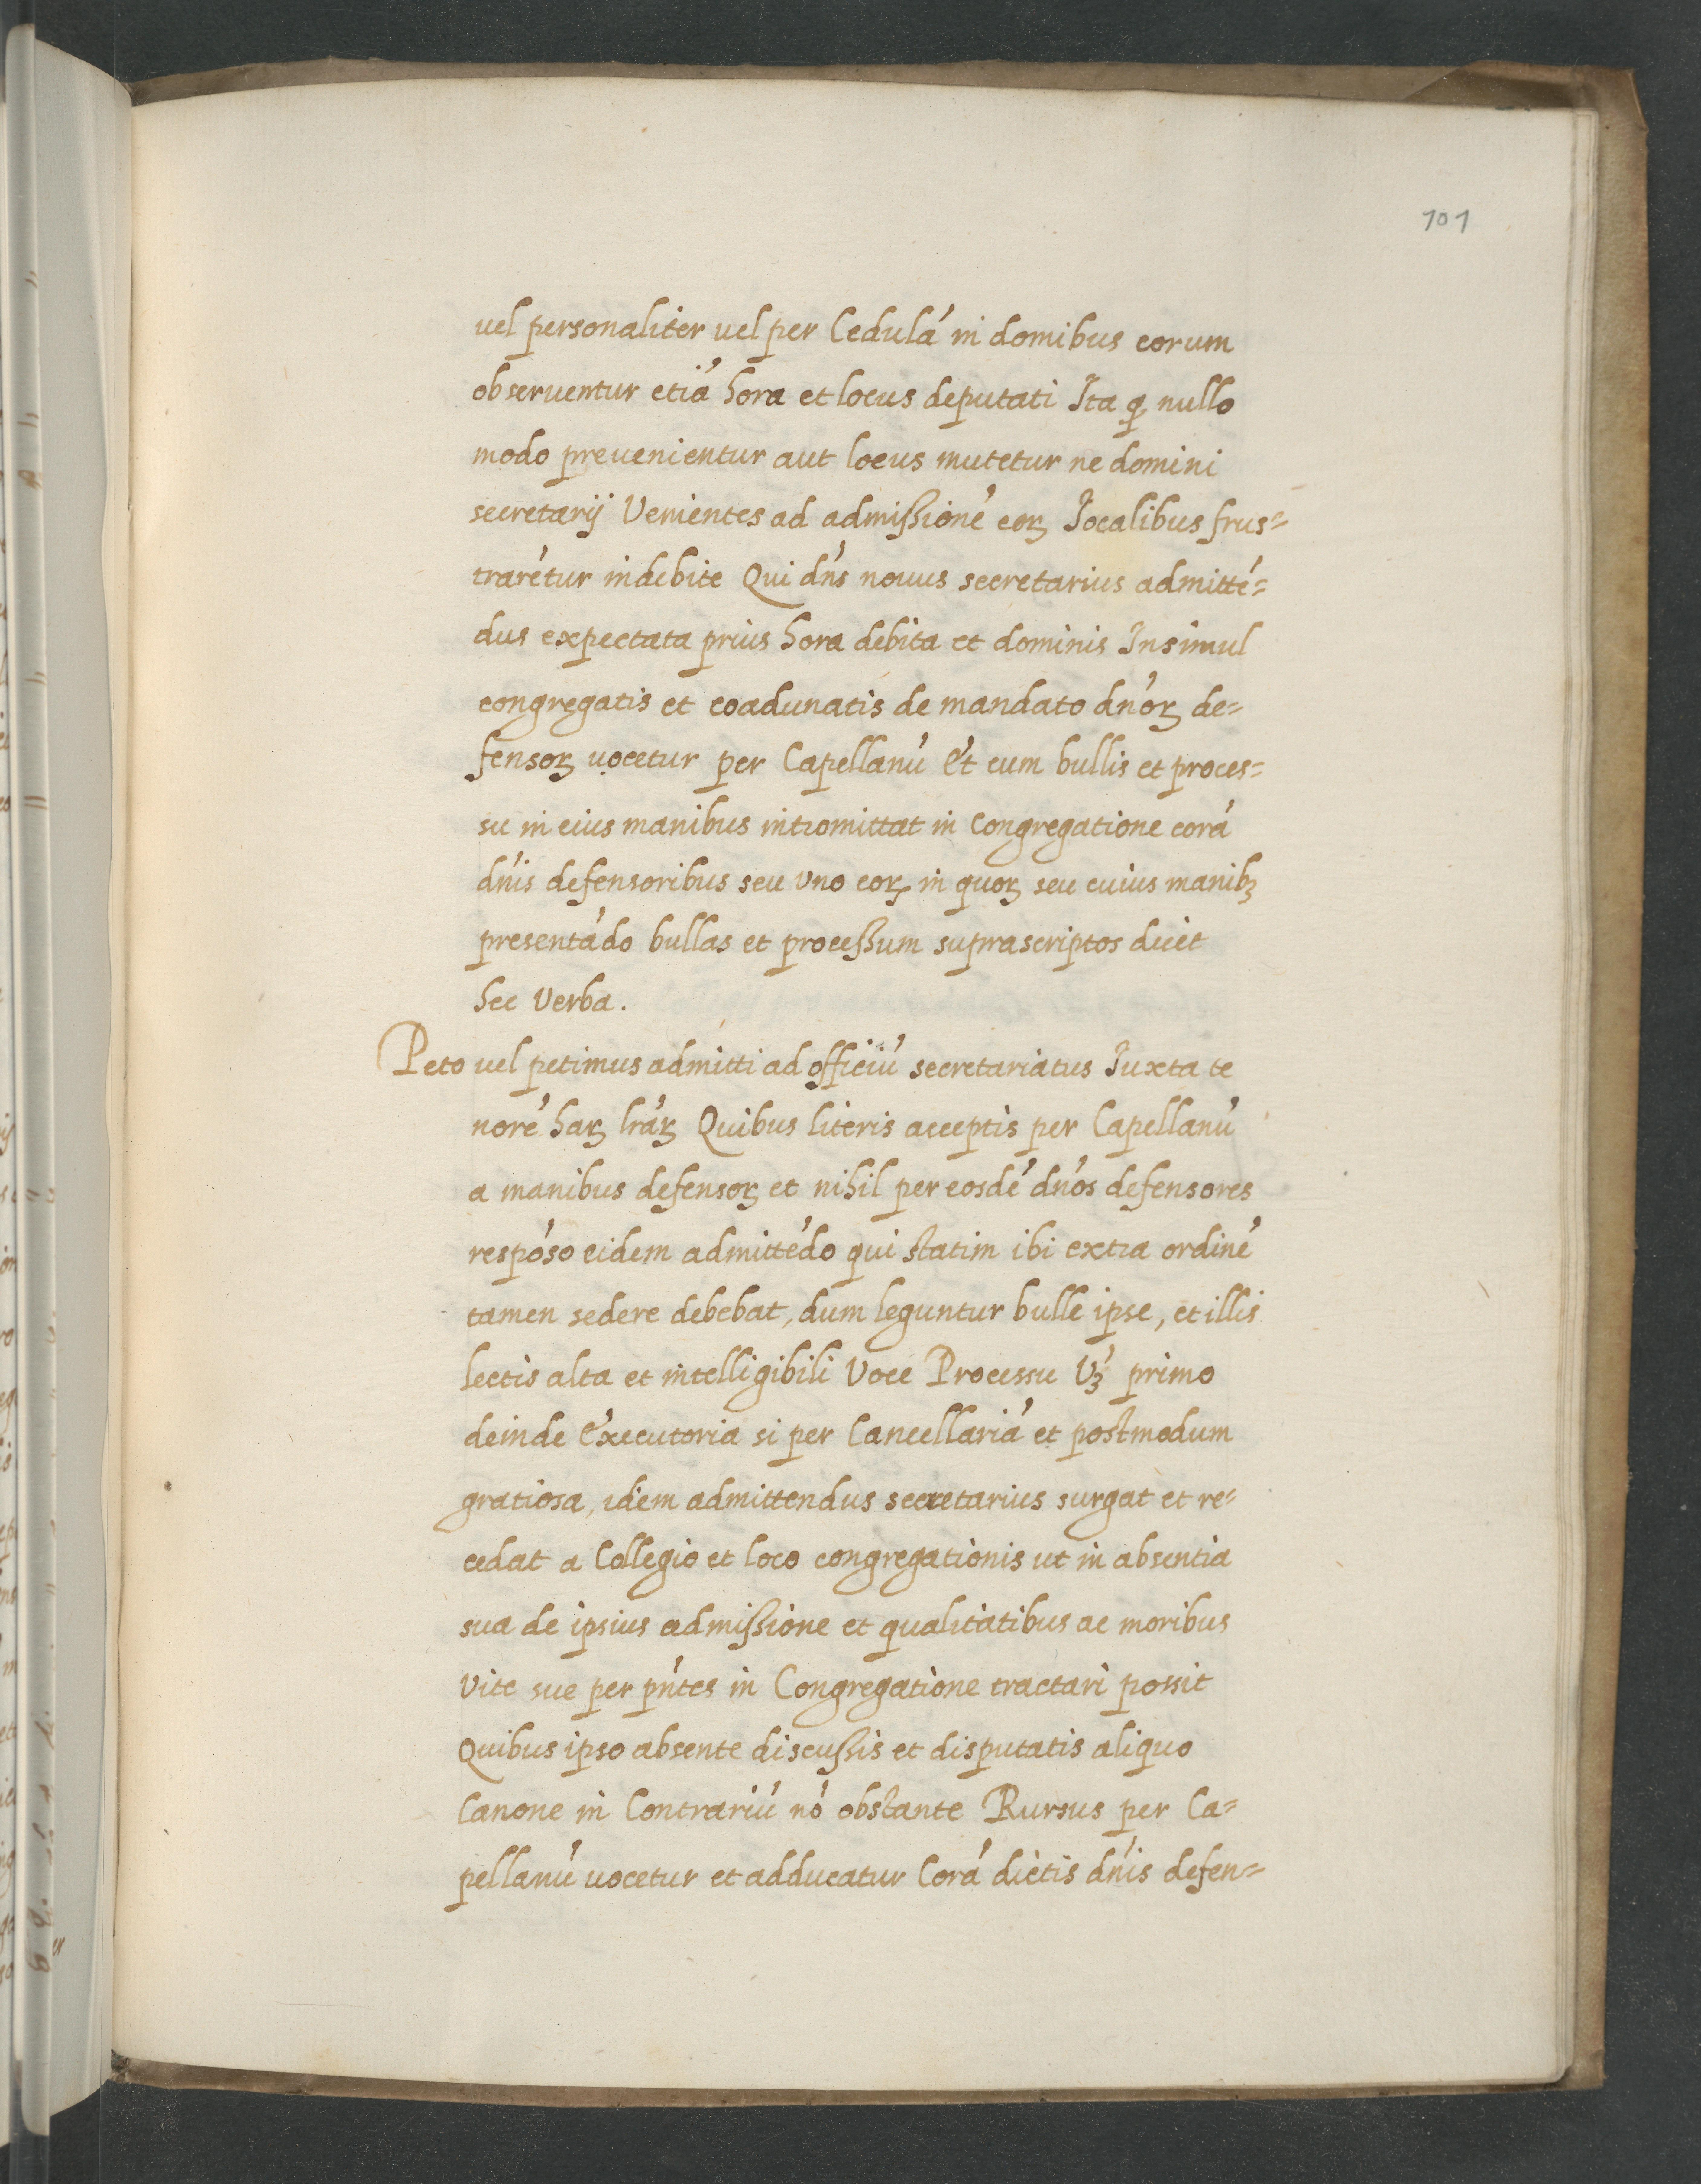 101
uel personaliter uel per Cedulá in domibus eorum
obseruentur etiá hora et locus deputati Ita ꝙ nullo
modo preuenientur aut locus mutetur ne domini
secretarij Venientes ad admißioné eoꝝ Iocalibus frus=
traré́tur indebite Qui dńs nouus secretarius admitté=
dus expectata prius hora debita et dominis Insimul
congregatis et coadunatis de mandato dnóꝝ de=
fensoꝝ uocetur per Capellanú Et cum bullis et proces=
su in eius manibus intromittat in Congregatione corá
dńis defensoribus seu vno eoꝝ in quoꝝ seu cuius manibꝫ
presentádo bullas et proceßum suprascriptos dicet
hec Verba.
Peto uel petimus admitti ad officiú secretariatus Iuxta te
noré haꝝ lráꝝ Quibus literis acceptis per Capellanú
a manibus defensoꝝ et nihil per eosdé dnós defensores
respóso eidem admittédo qui statim ibi extra ordiné
tamen sedere debebat, dum leguntur bulle ipse, et illis
lectis alta et intelligibili Voce Processu Vꝫ́ primo
deinde Executoria si per Cancellariá et postmodum
gratiosa, idem admittendus secretarius surgat et re=
cedat a Collegio et loco congregationis ut in absentia
sua de ipsius admißione et qualitatibus ac moribus
Vite sue per pńtes in Congregatione tractari possit
Quibus ipso absente discußis et disputatis aliquo
Canone in Contrariú nó obstante Rursus per Ca=
pellanú uocetur et adducatur Corá dictis dńis defen=